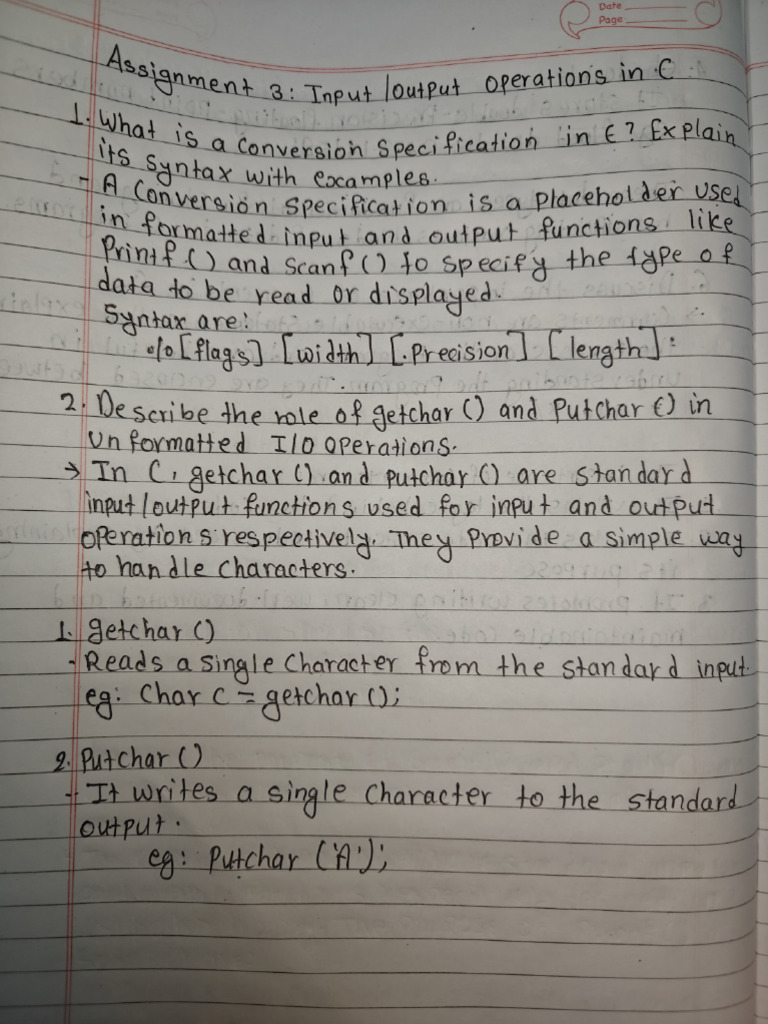 Date
Page
Assignment 3: Input /output operations in C
1. What is a Conversion Specification in C? Explain
its syntax with examples.
- A Conversion Specification is a placeholder used
in formatted input and output functions like
Printf () and Scanf () to specify the type of
data to be read or displayed.
Syntax are:
%[flags] [width] [.Precision] [length]:
2. Describe the role of getchar () and Putchar () in
Unformatted I/O operations.
→ In C, getchar () and putchar () are standard
input/output functions used for input and output
operations respectively. They provide a simple way
to handle characters.
1. getchar ()
- Reads a single character from the standard input.
eg: Char C = getchar ();
2. Putchar ()
- It writes a single character to the standard
output.
eg: Putchar ('A');